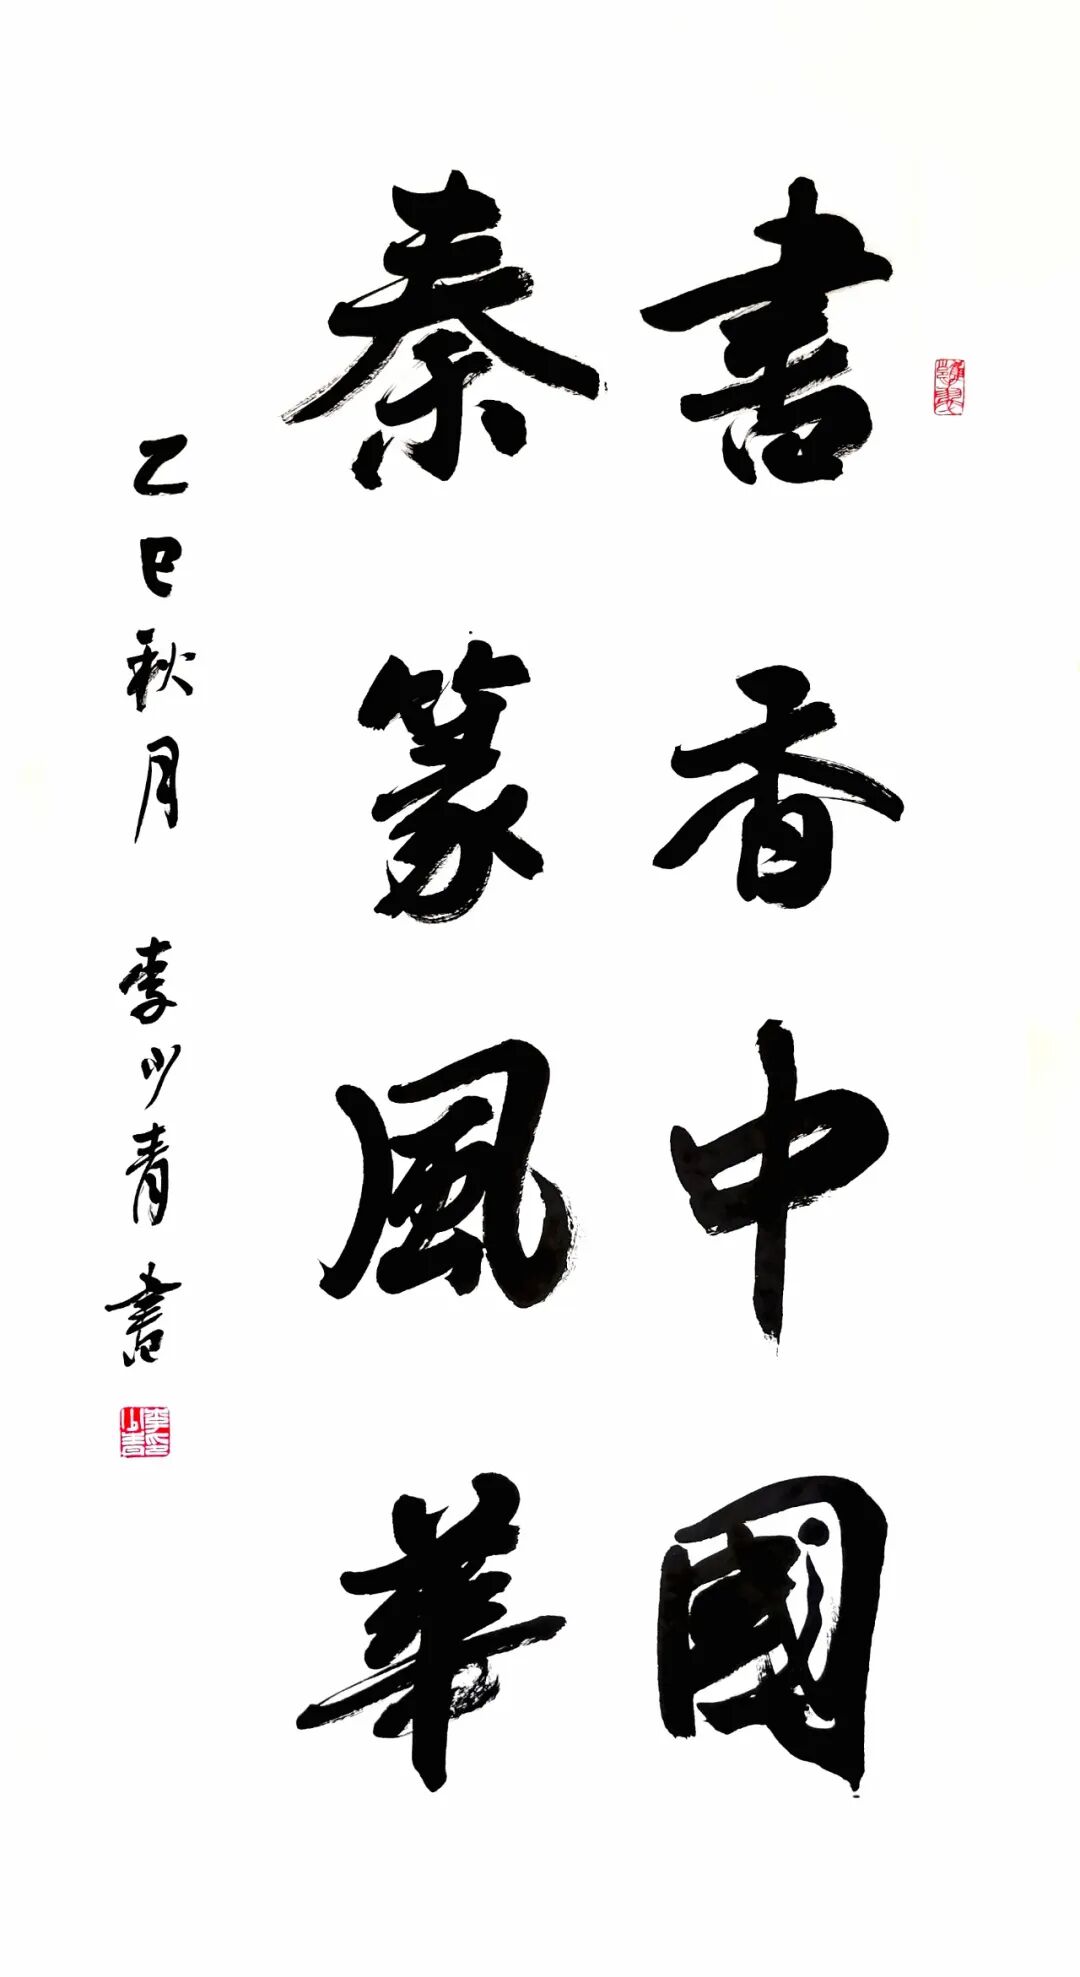 書香中國
秦篆風華
乙巳秋月 李少青書
李少青印